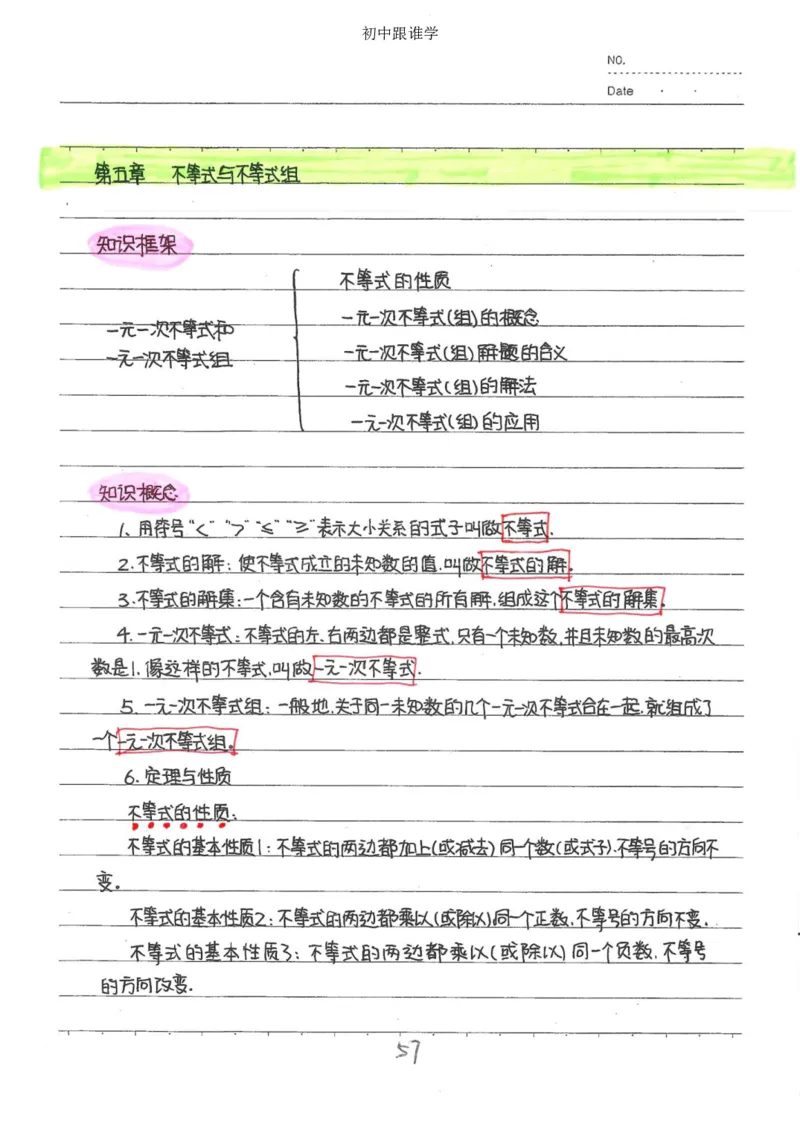 初中跟谁学
NO.
Date
第五章 不等式与不等式组
知识框架
不等式的性质
一元一次不等式(组)的概念
一元一次不等式和
一元一次不等式(组)解题的含义
一元一次不等式组
一元一次不等式(组)的解法
一元一次不等式(组)的应用
知识概念
1、用符号“<”“>”“≤”“≥”表示大小关系的式子叫做不等式.
2.不等式的解:使不等式成立的未知数的值.叫做不等式的解。
3.不等式的解集:一个含有未知数的不等式的所有解.组成这个不等式的解集。
4.一元一次不等式:不等式的左、右两边都是整式,只有一个未知数,并且未知数的最高次
数是1.像这样的不等式,叫做一元一次不等式.
5.一元一次不等式组:一般地,关于同一未知数的几个一元一次不等式合在一起,就组成了
一个一元一次不等式组。
6.定理与性质
不等式的性质:
不等式的基本性质1:不等式的两边都加上(或减去)同一个数(或式子).不等号的方向不
变。
不等式的基本性质2:不等式的两边都乘以(或除以)同一个正数,不等号的方向不变.
不等式的基本性质3:不等式的两边都乘以(或除以)同一个负数,不等号
的方向改变.
57